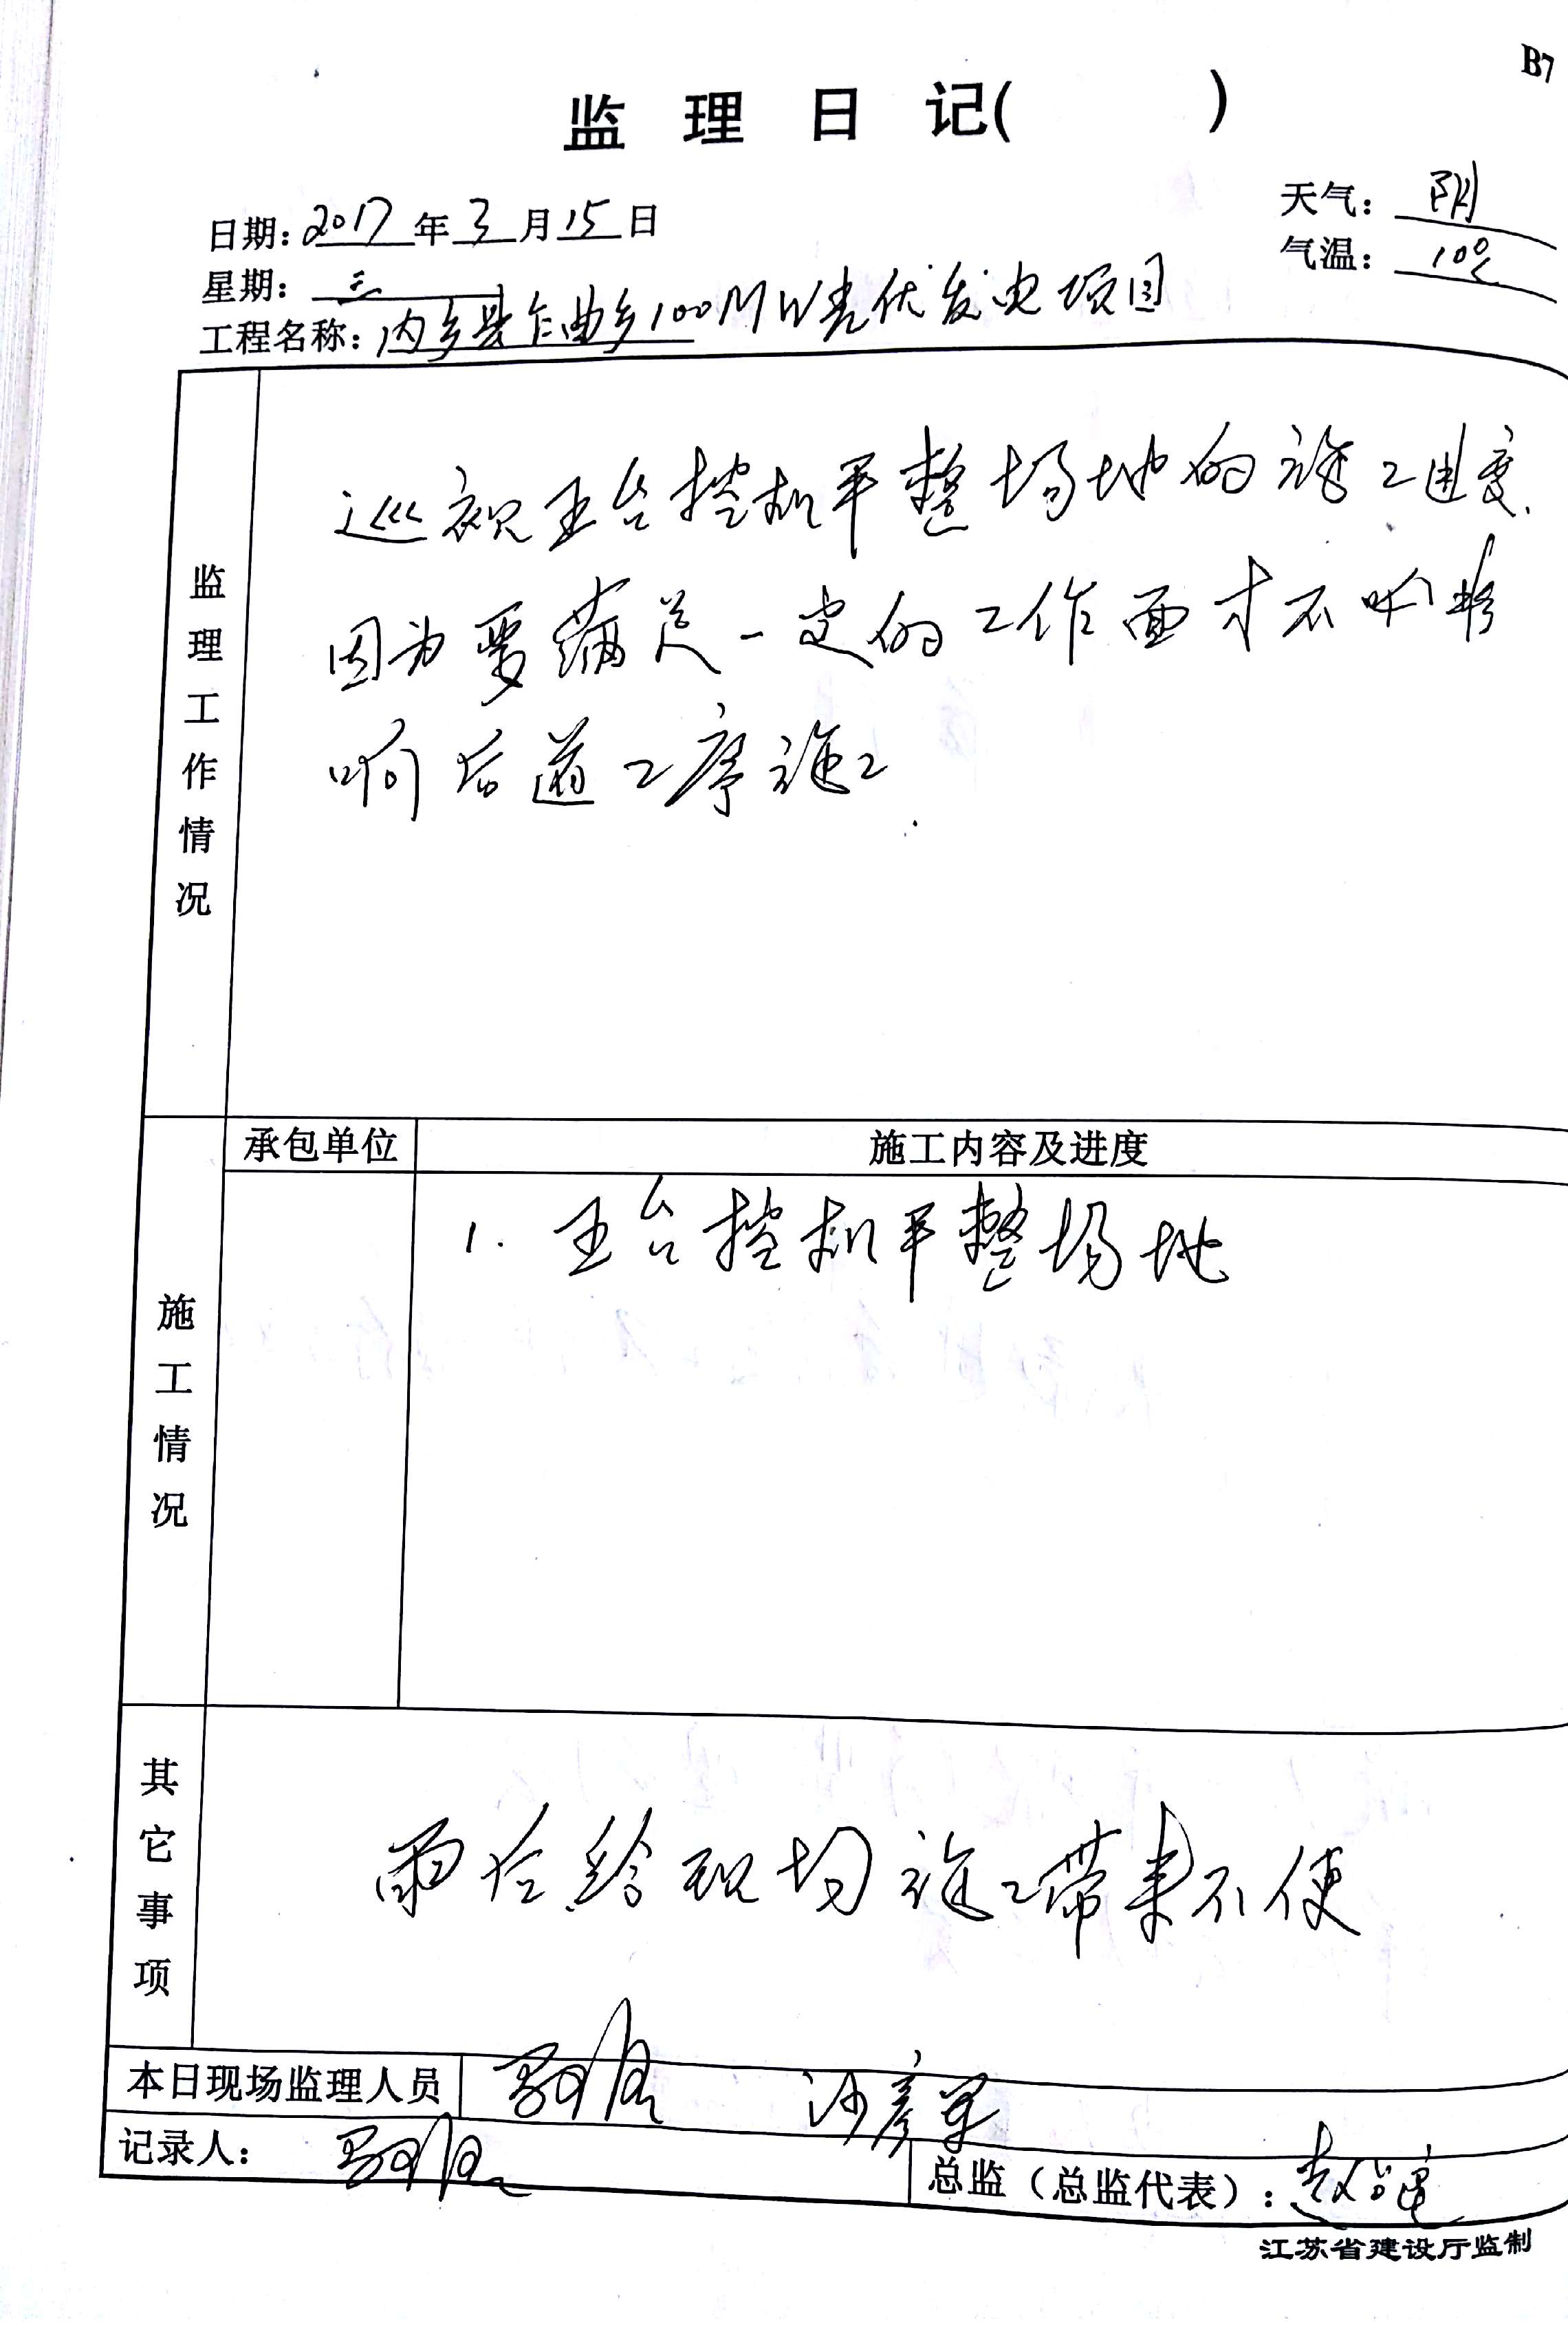 B7
监理日记( )
日期:2017年3月15日
天气:阴
星期:三
气温:10℃
工程名称:内乡县乍曲乡100MW光伏发电项目
监理工作情况
巡视五台挖机平整场地的施工进度.
因为要满足一定的工作面才不吖影
响后道工序施工.
承包单位
施工内容及进度
施工情况
1. 五台挖机平整场地
其它事项
雨后给现场施工带来不便
本日现场监理人员
沙彦军
记录人:
总监(总监代表):
江苏省建设厅监制